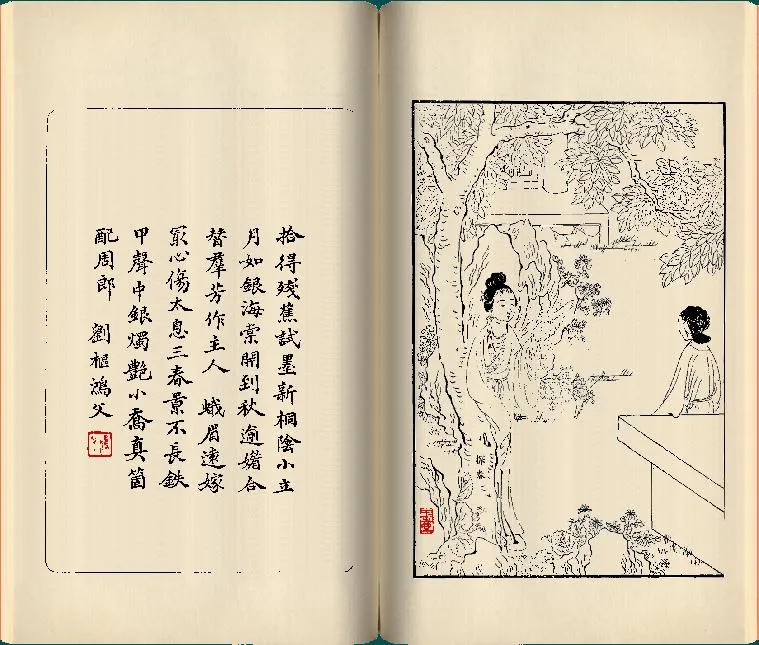 探春
拾得殘蕉試墨新桐陰小立
月如銀海棠開到秋逾媚合
替羣芳作主人 蛾眉遠嫁
冣心傷太息三春景不長鉄
甲聲中銀燭艷小喬真箇
配周郎 劉樞鴻父